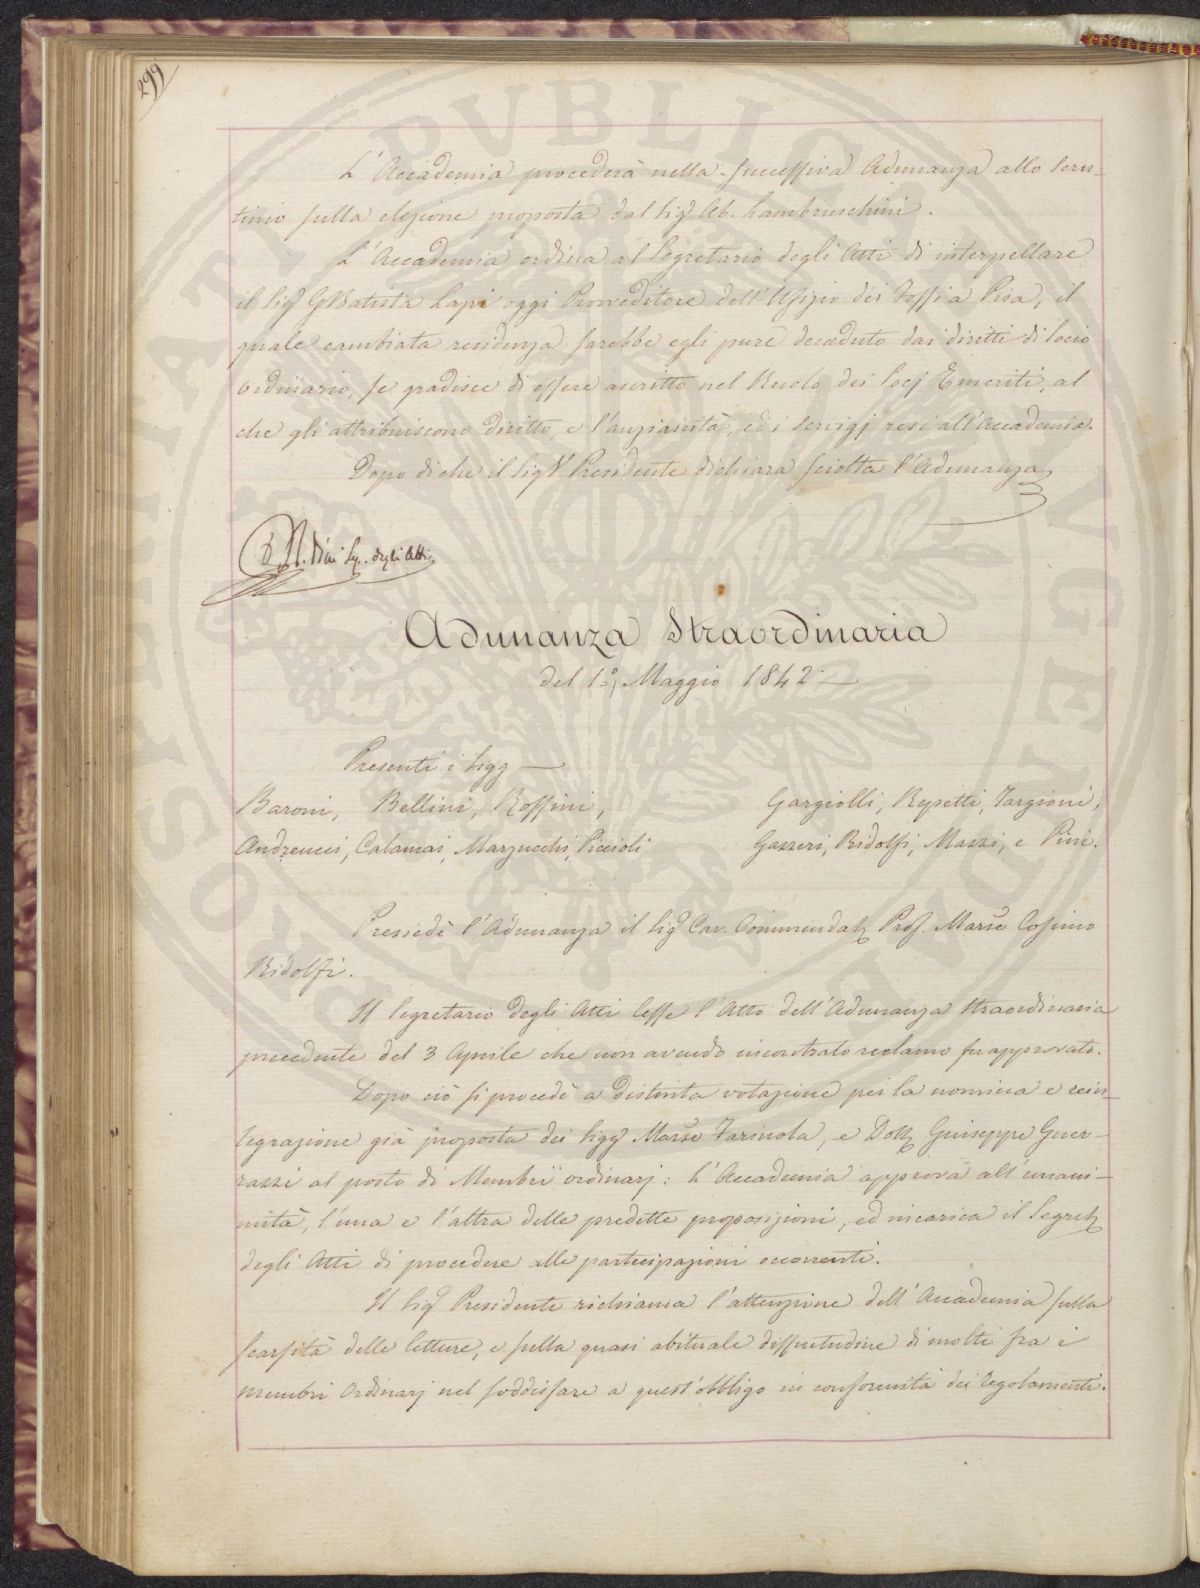 299
L'Accademia procederà nella successiva Adunanza allo scru-
tinio sulla elezione proposta dal Sigr Ab. Lambruschini.
L'Accademia ordina al Segretario degli Atti di interpellare
il Sigr GBatista Lapi oggi Provveditore dell'Ufizio dei Fossi a Pisa, il
quale cambiata residenza sarebbe egli pure decaduto dai diritti di Socio
ordinario, se gradisce di essere ascritto nel Ruolo dei Socj Emeriti, al
che gli attribuiscono diritto, e l'anzianità, ed i servigj resi all'Accademia.
Dopo di che il Sigr Presidente dichiara sciolta l'Adunanza
Seg. degli Atti
Adunanza Straordinaria
del 1º Maggio 1842
Presenti i Sigg
Baroni, Bellini, Roffini, Gargiolli, Repetti, Targioni,
Andreucci, Calamai, Marzucchi, Piccioli Gazzeri, Ridolfi, Mazzi, e Pini.
Presiedè l'Adunanza il Sigr Cav. Commendatr Prof. Marse Cosimo
Ridolfi.
Il Segretario degli Atti lesse l'Atto dell'Adunanza Straordinaria
precedente del 3 Aprile che non avendo incontrato reclamo fu approvato.
Dopo ciò si procedè a distinta votazione per la nomina e rein-
tegrazione già proposta dei Sigg Marse Farinola, e Dottr Giuseppe Guer-
razzi al posto di Membri ordinarj: L'Accademia approva all'unani-
mità, l'una e l'altra delle predette proposizioni, ed incarica il Segretr
degli Atti di procedere alle partecipazioni occorrenti.
Il Sigr Presidente richiama l'attenzione dell'Accademia sulla
scarsità delle letture, e sulla quasi abituale dissuetudine di molti fra i
membri Ordinarj nel soddisfare a quest'obbligo in conformità dei Regolamenti.